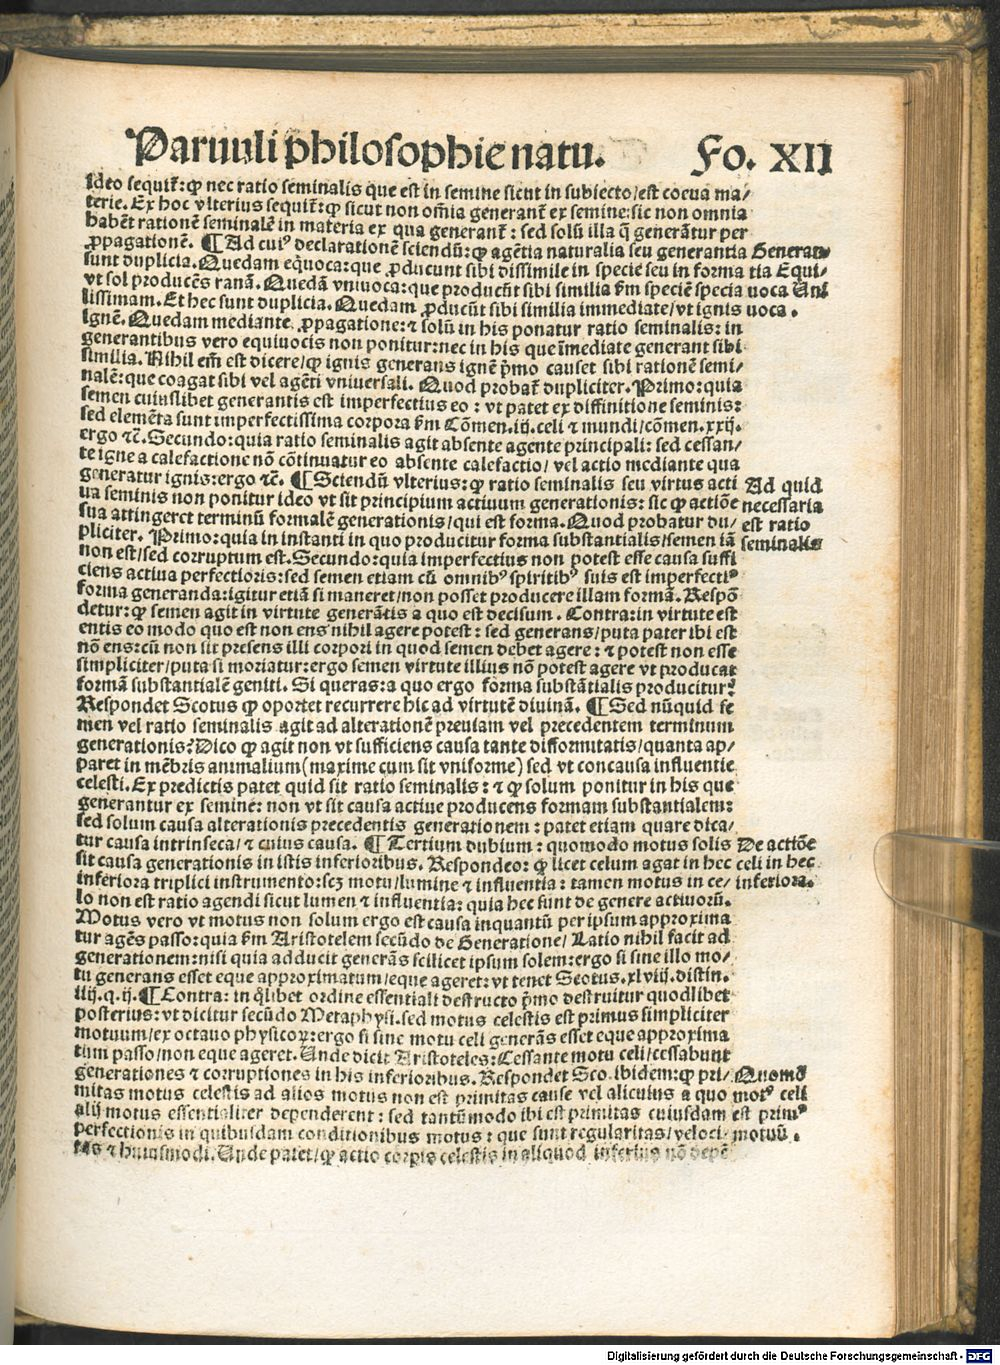 Paruuli philosophie natu. Fo. XII
Ideo sequit̃: ꝙ nec ratio seminalis que est in semine sicut in subiecto/est coeua ma/
terie. Ex hoc vlterius sequit̃: ꝙ sicut non om̃ia generant̃ ex semine: sic non omnia
habẽt rationẽ seminalẽ in materia ex qua generant̃: sed solũ illa q̃ generãtur per
ꝓpagationẽ. ¶ Ad cuiꝰ declarationẽ sciendũ: ꝙ agẽtia naturalia seu generantia
Generan
sunt duplicia. Quedam eq̃uoca: que ꝓducunt sibi dissimile in specie seu in forma
tia Equi/
vt sol producẽs ranã. Quedã vniuoca: que producũt sibi similia s̃m speciẽ specia
uoca Uni
lissimam. Et hec sunt duplicia. Quedam ꝓducũt sibi similia immediate/vt ignis
uoca.
ignẽ. Quedam mediante ꝓpagatione: ⁊ solũ in his ponatur ratio seminalis: in
generantibus vero equiuocis non ponitur: nec in his que im̃ediate generant sibi
similia. Nihil em̃ est dicere/ꝙ ignis generans ignẽ p̃mo causet sibi rationẽ semi/
nalẽ: que coagat sibi vel agẽti vniuersali. Quod probat̃ dupliciter. Primo: quia
semen cuiuslibet generantis est imperfectius eo: vt patet ex diffinitione seminis:
sed elemẽta sunt imperfectissima corpora s̃m Cõmen. iij. celi ⁊ mundi/cõmen. xxij.
ergo ⁊c̃. Secundo: quia ratio seminalis agit absente agente principali: sed cessan/
te igne a calefactione nõ cõtinuatur eo absente calefactio/vel actio mediante qua
generatur ignis: ergo ⁊c̃. ¶ Sciendũ vlterius: ꝙ ratio seminalis seu virtus acti
Ad quid
ua seminis non ponitur ideo vt sit principium actiuum generationis: sic ꝙ actiõe
necessaria
sua attingeret terminũ formalẽ generationis/qui est forma. Quod probatur du/
est ratio
pliciter. Primo: quia in instanti in quo producitur forma substantialis/semen iã
seminalis
non est/sed corruptum est. Secundo: quia imperfectius non potest esse causa suffi
ciens actiua perfectioris: sed semen etiam cũ omnibꝰ spiritibꝰ suis est imperfectiꝰ
forma generanda: igitur etiã si maneret/non posset producere illam formã. Respõ
detur: ꝙ semen agit in virtute generãtis a quo est decisum. Contra: in virtute est
entis eo modo quo est non ens nihil agere potest: sed generans/puta pater ibi est
nõ ens: cũ non sit presens illi corpori in quod semen debet agere: ⁊ potest non esse
simpliciter/puta si moriatur: ergo semen virtute illius nõ potest agere vt producat
formã substantialẽ geniti. Si queras: a quo ergo forma substãtialis producitur?
Respondet Scotus ꝙ oportet recurrere hic ad virtutẽ diuinã. ¶ Sed nũquid se
men vel ratio seminalis agit ad alterationẽ preuiam vel precedentem terminum
generationis? Dico ꝙ agit non vt sufficiens causa tante difformitatis/quanta ap/
paret in mẽbris animalium (maxime cum sit vniforme) sed vt concausa influentie
celesti. Ex predictis patet quid sit ratio seminalis: ⁊ ꝙ solum ponitur in his que
generantur ex semine: non vt sit causa actiue producens formam substantialem:
sed solum causa alterationis precedentis generationem: patet etiam quare dica/
tur causa intrinseca/⁊ cuius causa. ¶ Tertium dubium: quomodo motus solis
De actiõe
sit causa generationis in istis inferioribus. Respondeo: ꝙ licet celum agat in hec
celi in hec
inferiora triplici instrumento: scꝫ motu/lumine ⁊ influentia: tamen motus in ce/
inferiora.
lo non est ratio agendi sicut lumen ⁊ influentia: quia hec sunt de genere actiuorũ.
Motus vero vt motus non solum ergo est causa inquantũ per ipsum approxima
tur agẽs passo: quia s̃m Aristotelem secũdo de Generatione/Latio nihil facit ad
generationem: nisi quia adducit generãs scilicet ipsum solem: ergo si sine illo mo/
tu generans esset eque approximatum/eque ageret: vt tenet Scotus. xlviij. distin.
iiij. q. ij. ¶ Contra: in q̃libet ordine essentiali destructo p̃mo destruitur quodlibet
posterius: vt dicitur secũdo Metaphysi. sed motus celestis est primus simpliciter
motuum/ex octauo physicoꝝ: ergo si sine motu celi generãs esset eque approxima
tum passo/non eque ageret. Unde dicit Aristoteles: Cessante motu celi/cessabunt
generationes ⁊ corruptiones in his inferioribus. Respondet Sco. ibidem: ꝙ pri/
Quomõ
mitas motus celestis ad alios motus non est primitas cause vel alicuius a quo
motꝰ celi
alij motus essentialiter dependerent: sed tantũmodo ibi est primitas cuiusdam
est primꝰ
perfectionis in quibusdam conditionibus motus: que sunt regularitas/veloci
motuũ.
tas ⁊ huiusmodi. Unde patet/ꝙ actio corpis celestis in aliquod inferius nõ depẽ
Digitalisierung gefördert durch die Deutsche Forschungsgemeinschaft - DFG